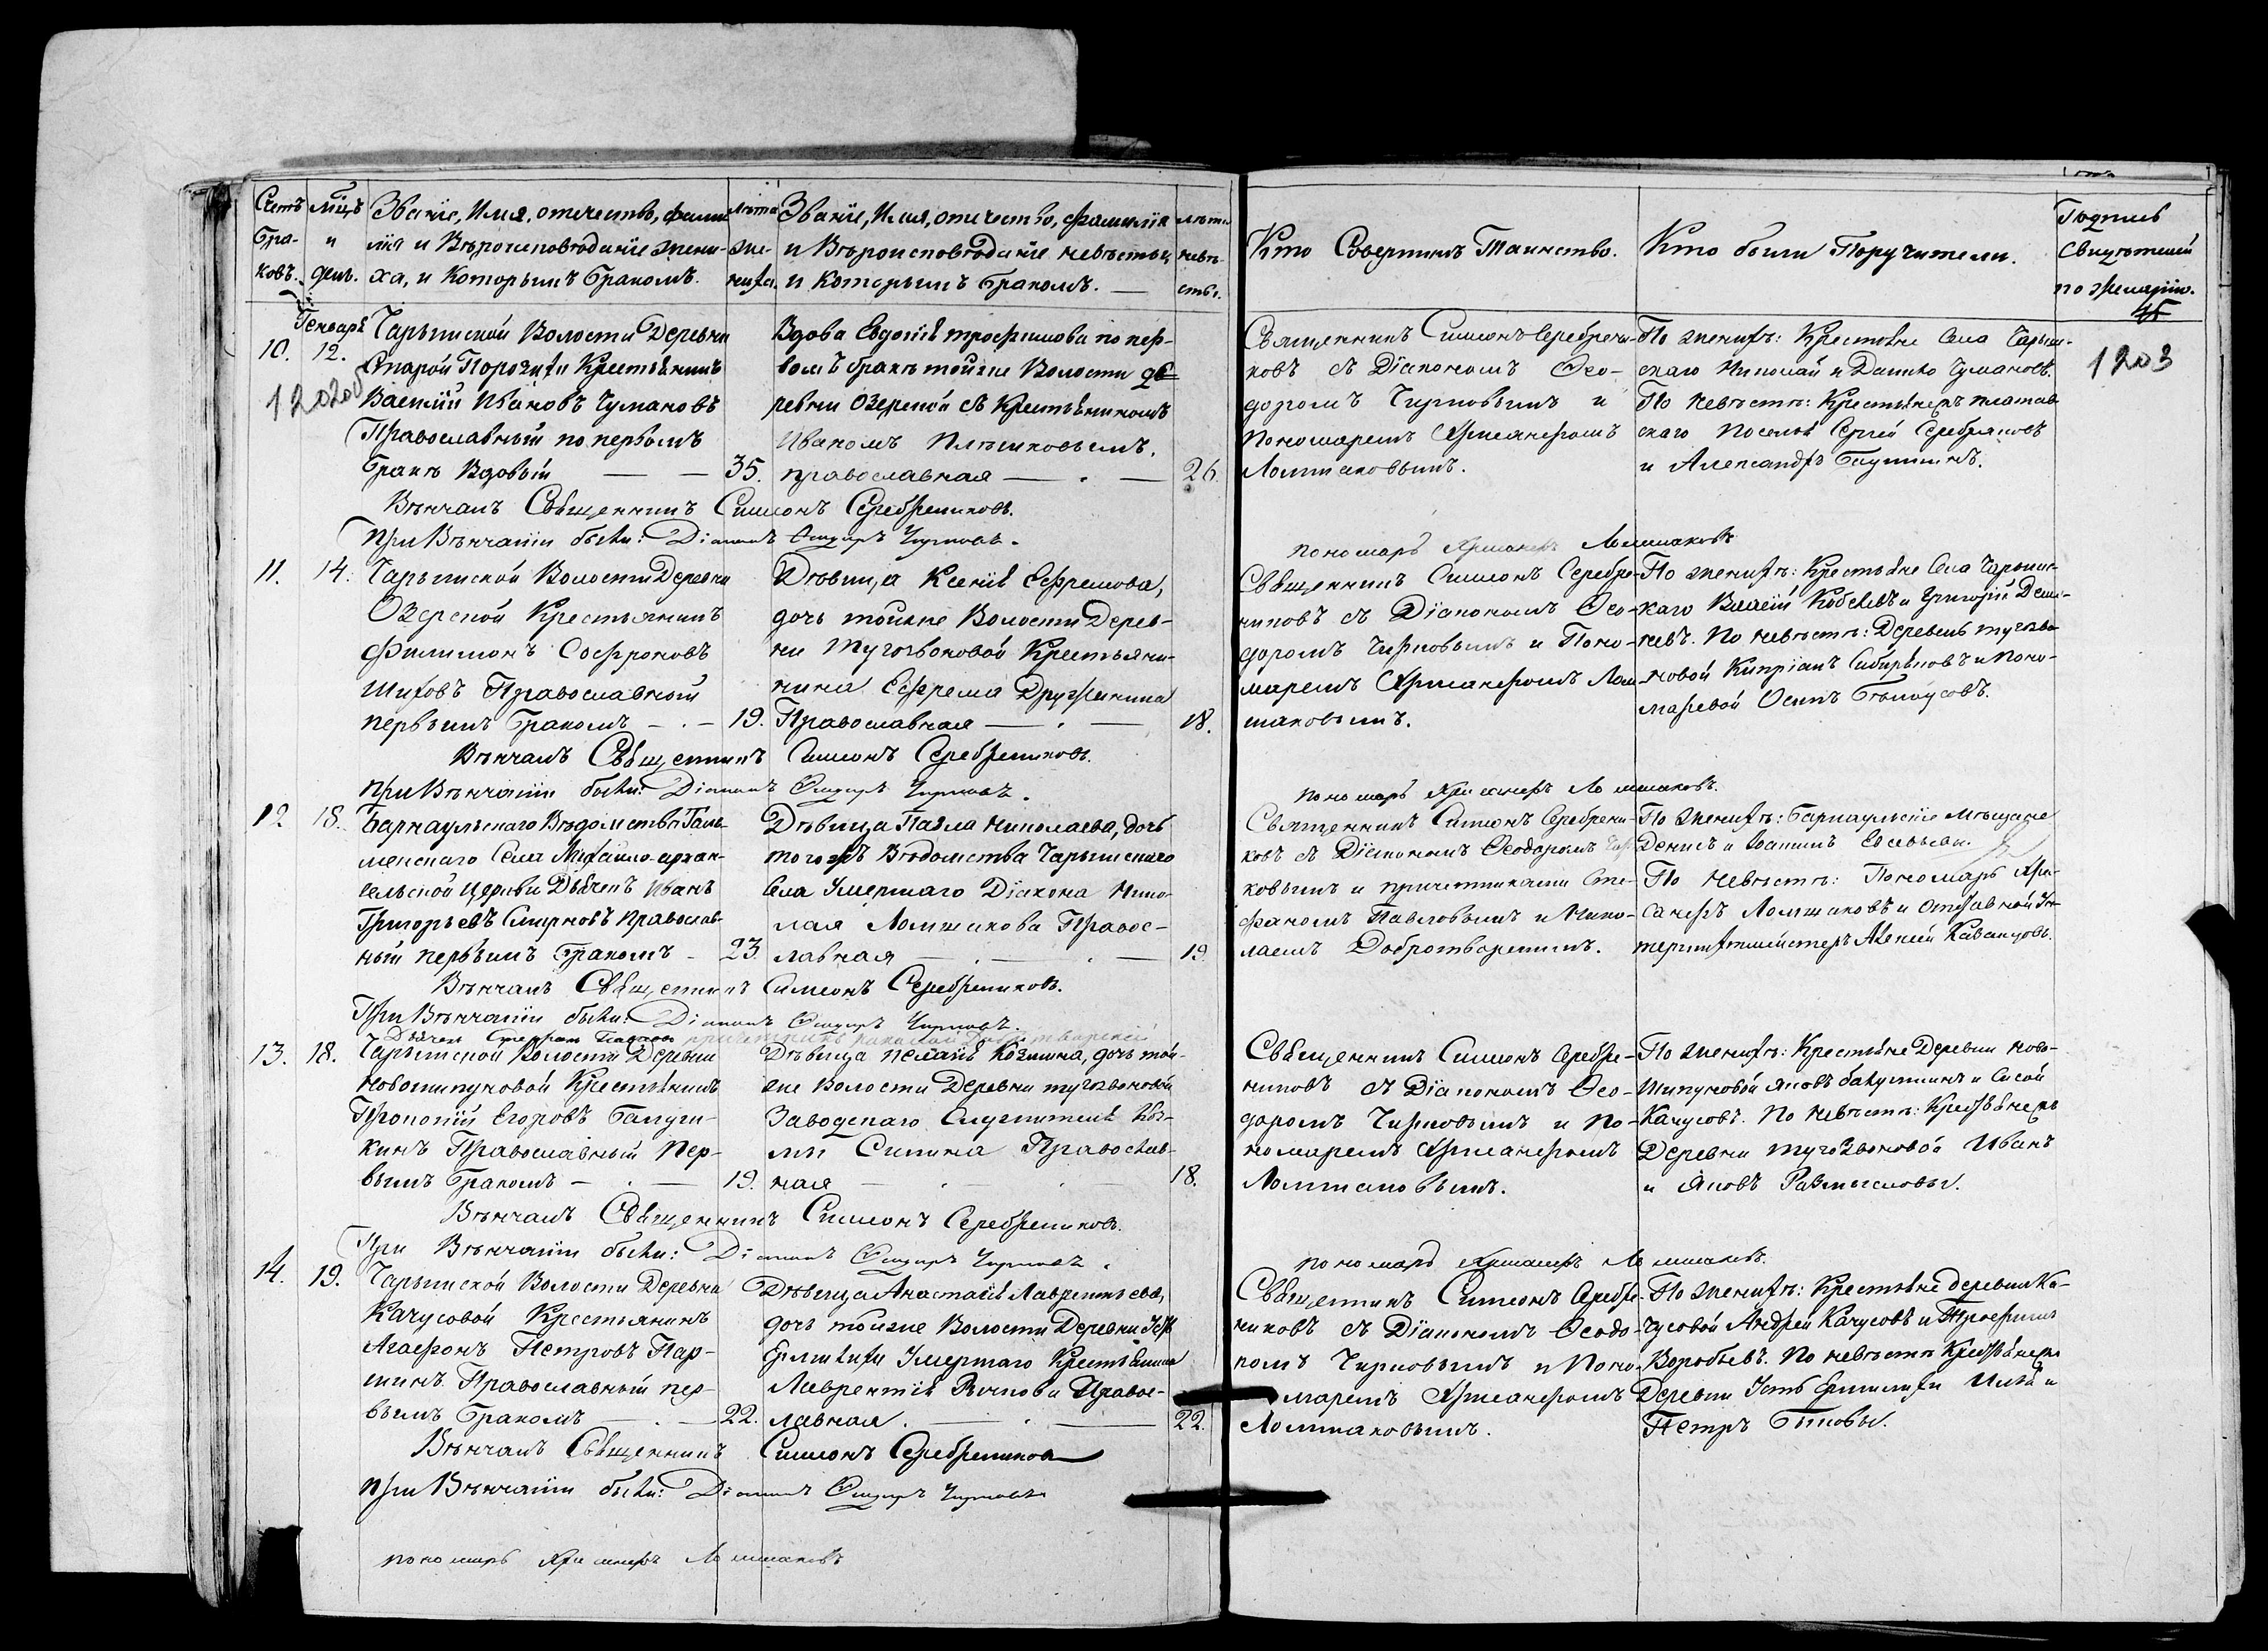 Счетъ Бра-ковъ.
Мцъ и день.
Званіе, Имя, отечество, фами-
лія и Вѣроисповѣданіе жени-
ха, и Которымъ Бракомъ.
Лѣта же-ниха.
Званіе, Имя, отечество, фамилія
и Вѣроисповѣданіе невѣсты,
и Которымъ Бракомъ. —
лѣта невѣ-сты.
Кто Совершилъ Таинство.
Кто были Поручители.
Подпись
Свидѣтелей
по желанію.
45
Генварь
10. 12.
1202об
Чарышской Волости Деревни
Старой Порозихи Крестьянинъ
Василій Ивановъ Чумаковъ
Православный по первомъ
бракѣ Вдовый — — 35.
Вдова Евдокія трофимова по пер-
вомъ бракѣ тойже Волости де-
ревни Озерской съ Крестьяниномъ
Иваномъ Плѣшковымъ,
православная — . — 26.
Священникъ Симеонъ Серебрени-
ковъ съ Діакономъ Ѳео-
доромъ Чирковымъ и
Пономаремъ
Ломшаковымъ.
По женихѣ: Крестьяне Села Чарыш-
скаго Николай и Данило Чумаковы.
По невѣстѣ: Крестьянеръ
скаго Поселья Сергей Серебряковъ
и Александръ
1203
Вѣнчалъ Священникъ Симеонъ Серебрениковъ.
При Вѣнчаніи были: Діаконъ Ѳеодоръ Чирковъ.
пономарь Ломшаковъ
11. 14.
Чарышской Волости Деревни
Озерской Крестьянинъ
Филимонъ Софроновъ
Шиховъ Православной
первымъ бракомъ — . — 19.
Дѣвица Ксенія Ефремова,
дочь тойже Волости Дерев-
ни Тугозвоновой Крестьяни-
нина Ефрема Дружинина
Православная — . — 18.
Священникъ Симеонъ Серебре-
никовъ съ Діакономъ Ѳео-
доромъ Чирковымъ и Поно-
маремъ Лом-
шаковымъ.
По женихѣ: Крестьяне Села Чарыш-
скаго Василій Кобелевъ и Григорій Деми-
невъ. По невѣстѣ: Деревень тугозво-
новой Кипріанъ Сибиряковъ и Поно-
маревой Осипъ Бѣлоусовъ.
Вѣнчалъ Священникъ Симеонъ Серебрениковъ.
при Вѣнчаніи были: Діаконъ Ѳеодоръ Чирковъ.
пономарь Ломшаковъ.
12 18.
Барнаульскаго Вѣдомства Таль-
менскаго Села Михайло-архан-
гельской Церкви Дьячекъ Иванъ
Григорьевъ Смирновъ Православ-
ный первымъ бракомъ - 23.
Дѣвица Павла Николаева, дочь
тогожъ Вѣдомства Чарышскаго
Села Умершаго Діакона Нико-
лая Ломшакова Правос-
лавная — . — . — 19
Священникъ Симеонъ Серебрени-
ковъ съ Діакономъ Ѳеодоромъ Чир-
ковымъ и причетниками Сте-
фаномъ Павловымъ и Нико-
лаемъ Добротворскимъ.
По женихѣ: Барнаульскіе Мѣщане
Денисъ и Іоакимъ
По невѣстѣ: Пономарь
Ломшаковъ и отставной Ун-
терши Алексей
Вѣнчалъ Священникъ Симеонъ Серебрениковъ.
При Вѣнчаніи были: Діаконъ Ѳеодоръ Чирковъ.
Дьячек Стефан Павлов причетникъ Николай Добротворскій
13. 18.
Чарышской Волости Деревни
Новошипуновой Крестьянинъ
Прокопій Егоровъ Бакуш-
кинъ Православный Пер-
вымъ бракомъ — . — 19.
Дѣвица Пелагія Козмина, дочь той-
же Волости Деревни тугозвоновой
Заводскаго Служителя Коз-
мы Силина Православ-
ная — . . — 18.
Священникъ Симеонъ Серебре-
никовъ съ Діакономъ Ѳео-
доромъ Чирковымъ и По-
номаремъ
Ломшаковымъ.
По женихѣ: Крестьяне Деревни ново-
Шипуновой Яковъ бакушкинъ и Сысой
Качусовъ. По невѣстѣ: Крестьянеръ
Деревни тугозвоновой Иванъ
и Яковъ Размысловы.
Вѣнчалъ Священникъ Симеонъ Серебрениковъ.
При Вѣнчаніи были: Діаконъ Ѳеодоръ Чирковъ.
пономарь Ломшаковъ.
14. 19.
Чарышской Волости Деревни
Качусовой Крестьянинъ
Агафонъ Петровъ Пар-
шинъ Православный пер-
вымъ бракомъ — . — 22.
Дѣвица Анастасія Лаврентьева,
дочь тойже Волости Деревни Усть
Ермилихи Умершаго Крестьянина
Лаврентія Правос-
лавная. — . — 22.
Священникъ Симеонъ Серебре-
никовъ съ Діакономъ Ѳеодо-
ромъ Чирковымъ и Поно-
маремъ
Ломшаковымъ.
По женихѣ: Крестьяне деревни Ка-
чусовой Андрей Качусовъ и Трофимъ
Воробьевъ. По невѣстѣ Крестьянеръ
Деревни Усть Ермилихи Илья и
Петръ Быковы.
Вѣнчалъ Священникъ Симеонъ Серебрениковъ
при Вѣнчаніи были: Діаконъ Ѳеодоръ Чирковъ
пономарь Ломшаковъ